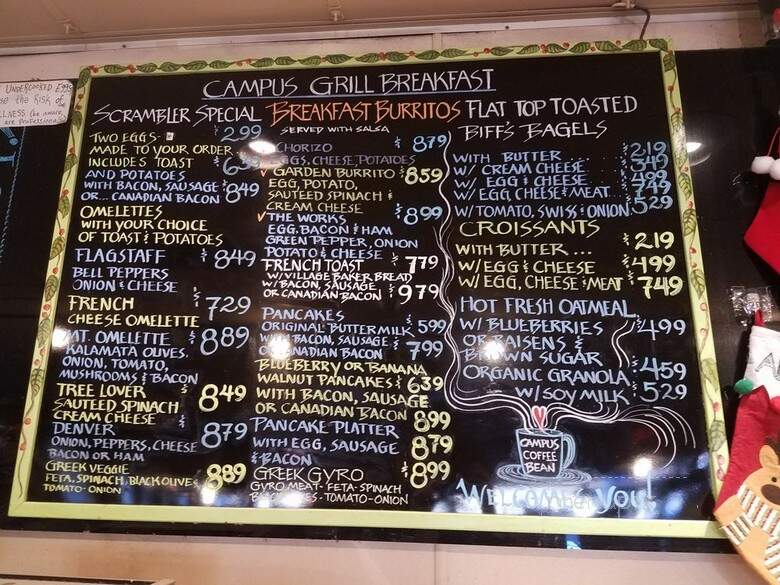 UNDERCOOKED EGGS
se the Risk of
LLNESS
CAMPUS GRILL BREAKFAST
SCRAMBLER SPECIAL
$2.99
TWO EGGS
MADE TO YOUR ORDER
INCLUDES TOAST
AND POTATOES
WITH BACON, SAUSAGE $8.49
OR... CANADIAN BACON
OMELETTES
WITH YOUR CHOICE
OF TOAST & POTATOES
FLAGSTAFF $8.49
BELL PEPPERS
ONION & CHEESE
FRENCH $7.29
CHEESE OMELETTE
MT. OMELETTE $8.89
KALAMATA OLIVES,
ONION, TOMATO,
MUSHROOMS & BACON
TREE LOVER $8.49
SAUTEED SPINACH
CREAM CHEESE
DENVER $8.79
ONION, PEPPERS, CHEESE
BACON OR HAM
GREEK VEGGIE $8.89
FETA, SPINACH, BLACK OLIVES
TOMATO-ONION
BREAKFAST BURRITOS
SERVED WITH SALSA
CHORIZO $8.79
EGGS, CHEESE, POTATOES
GARDEN BURRITO $8.59
EGG, POTATO,
SAUTEED SPINACH &
CREAM CHEESE
THE WORKS $8.99
EGG, BACON & HAM
GREEN PEPPER, ONION
POTATO & CHEESE
FRENCH TOAST $7.79
W/VILLAGE BAKER BREAD
W/BACON, SAUSAGE $9.79
OR CANADIAN BACON
PANCAKES
ORIGINAL BUTTERMILK $5.99
WITH BACON, SAUSAGE $7.99
OR CANADIAN BACON
BLUEBERRY OR BANANA
WALNUT PANCAKES $6.39
WITH BACON, SAUSAGE
OR CANADIAN BACON $8.99
PANCAKE PLATTER
WITH EGG, SAUSAGE $8.79
& BACON
GREEK GYRO $8.99
GYRO MEAT-FETA-SPINACH
-TOMATO-ONION
FLAT TOP TOASTED
BIFF'S BAGELS
WITH BUTTER... $2.19
W/ CREAM CHEESE
W/ EGG & CHEESE $4.99
W/ EGG, CHEESE & MEAT $7.49
W/TOMATO, SWISS & ONION $5.29
CROISSANTS
WITH BUTTER... $2.19
W/EGG & CHEESE $4.99
W/EGG, CHEESE & MEAT $7.49
HOT FRESH OATMEAL
W/ BLUEBERRIES $4.99
OR RAISENS &
BROWN SUGAR
ORGANIC GRANOLA $4.59
W/SOY MILK $5.29
CAMPUS
COFFEE
BEAN
WELCOMES YOU!